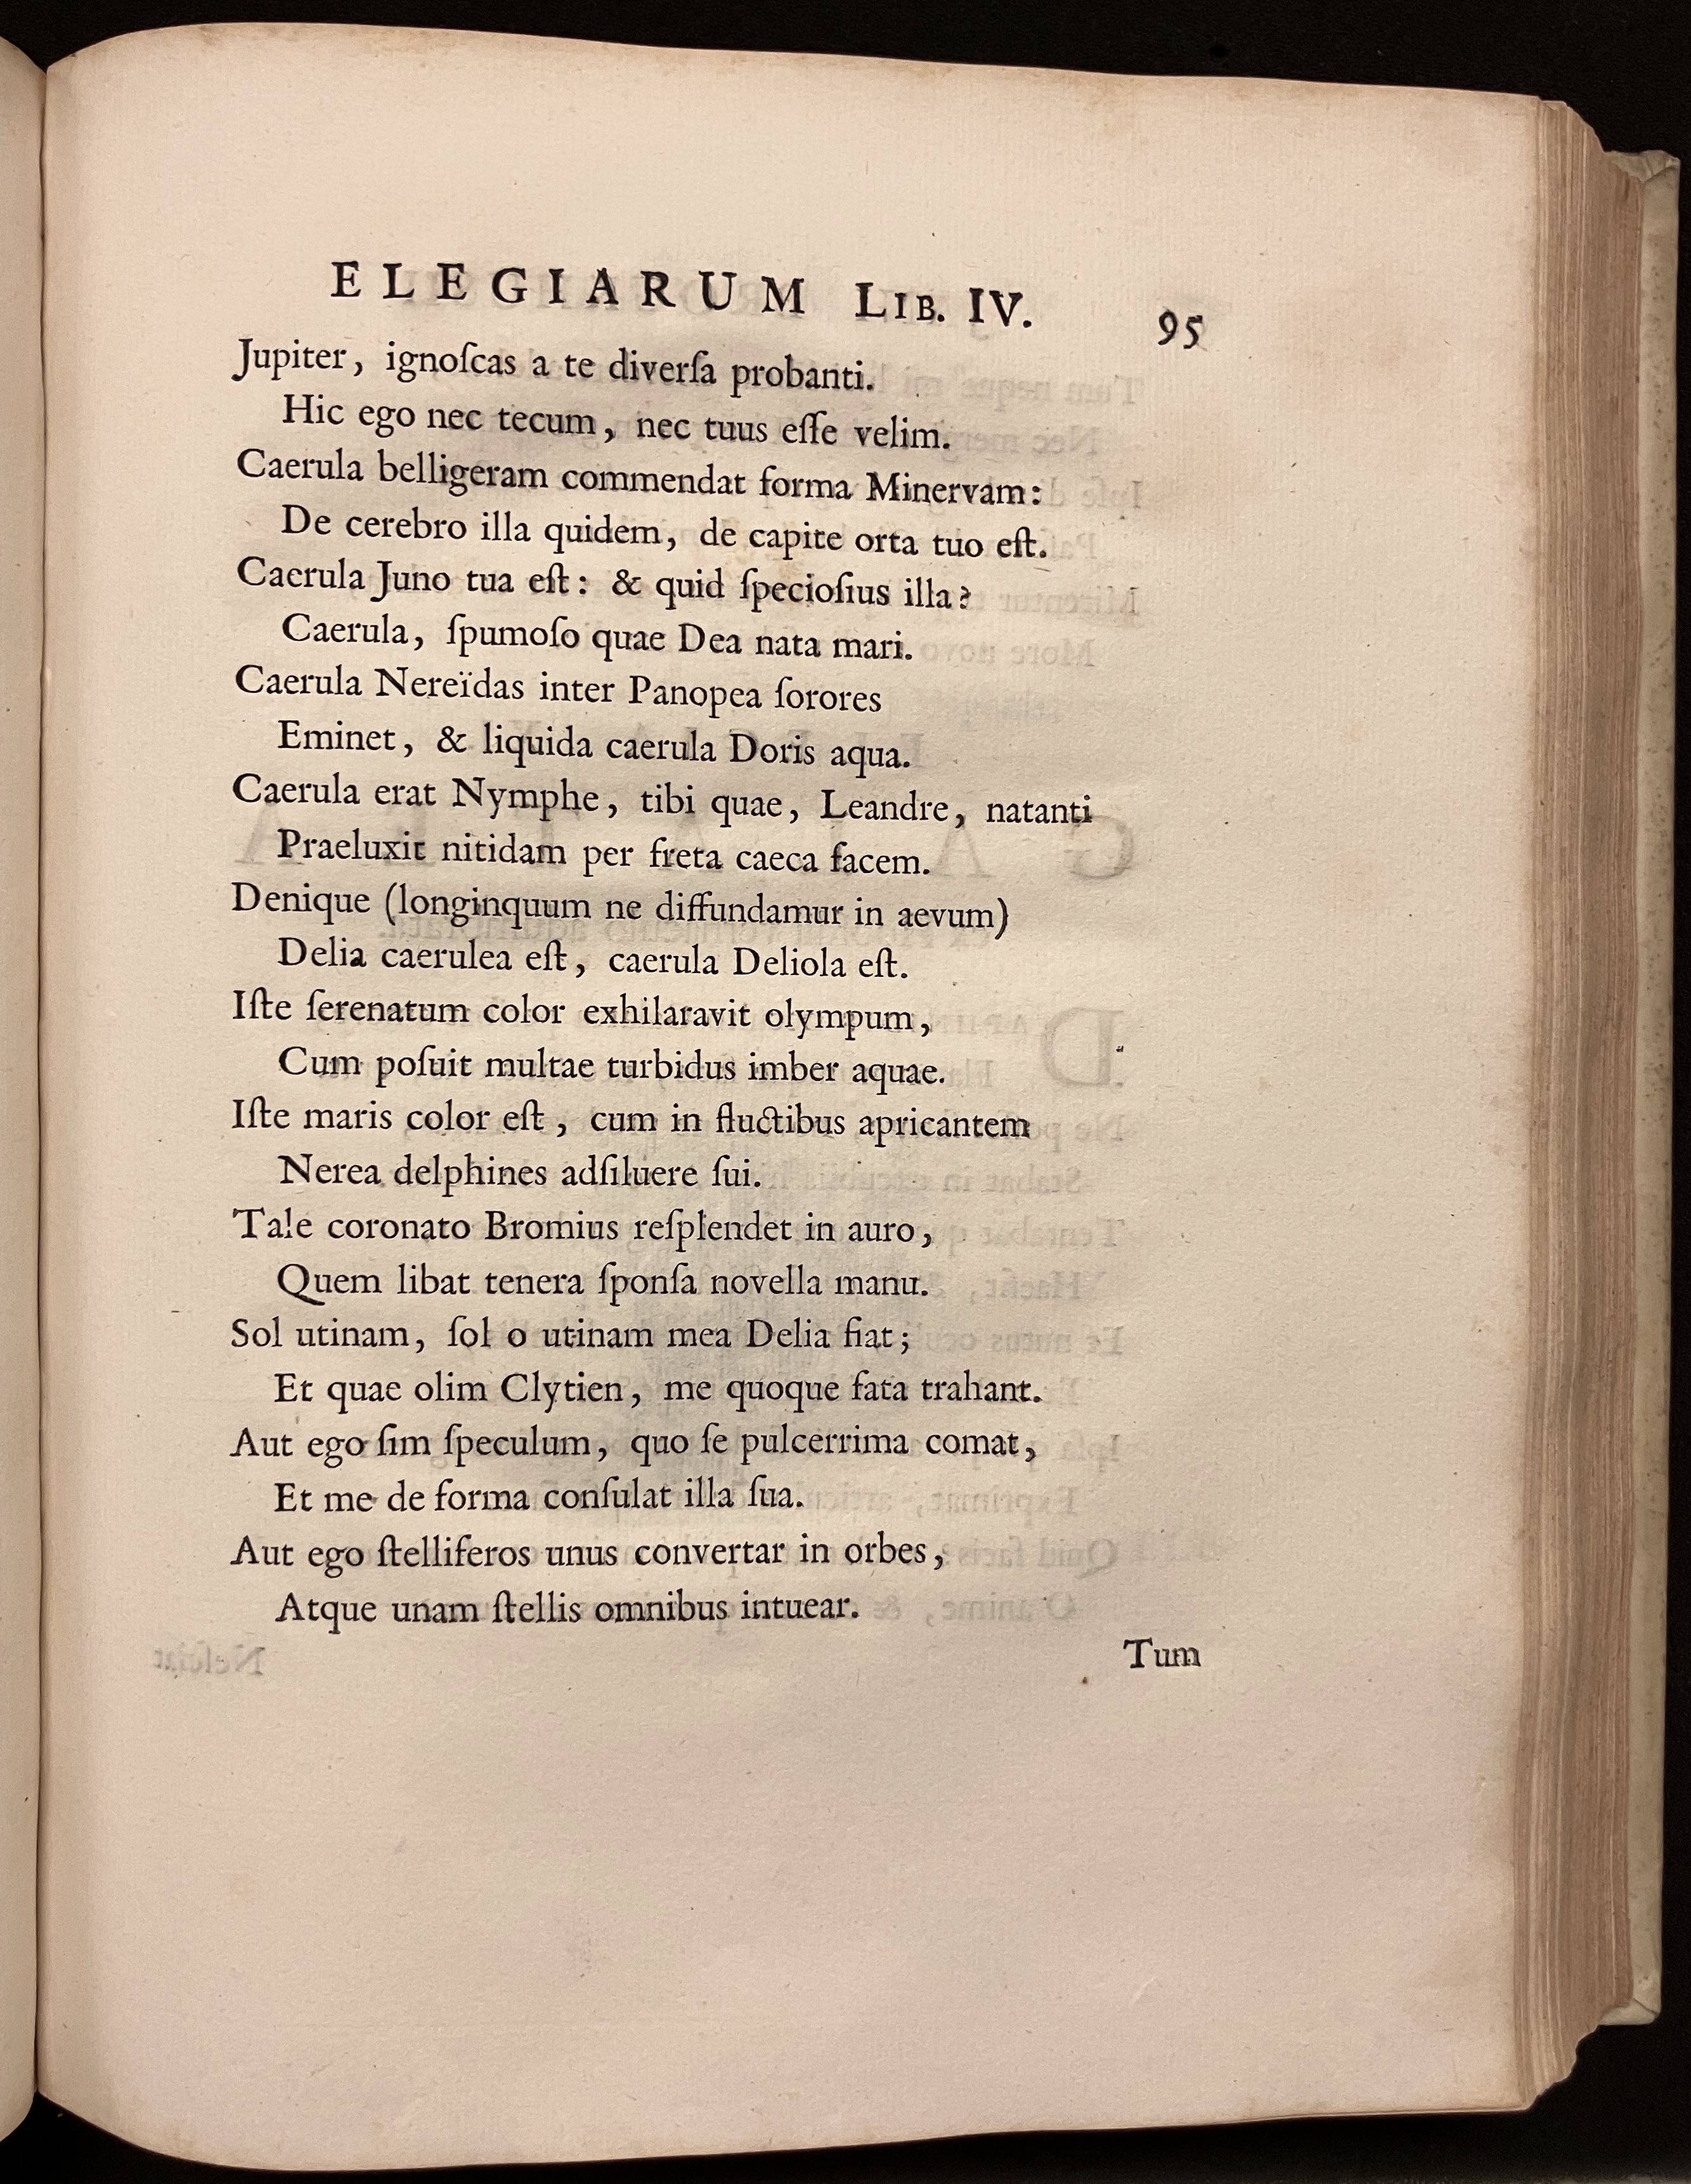 ELEGIARUM LIB. IV. 95
Jupiter, ignoſcas a te diverſa probanti.
Hic ego nec tecum, nec tuus eſſe velim.
Caerula belligeram commendat forma Minervam:
De cerebro illa quidem, de capite orta tuo eſt.
Caerula Juno tua eſt: & quid ſpecioſius illa?
Caerula, ſpumoſo quae Dea nata mari.
Caerula Nereïdas inter Panopea ſorores
Eminet, & liquida caerula Doris aqua.
Caerula erat Nymphe, tibi quae, Leandre, natanti
Praeluxit nitidam per freta caeca facem.
Denique (longinquum ne diffundamur in aevum)
Delia caerulea eſt, caerula Deliola eſt.
Iſte ſerenatum color exhilaravit olympum,
Cum poſuit multae turbidus imber aquae.
Iſte maris color eſt, cum in fluctibus apricantem
Nerea delphines adſiluere ſui.
Tale coronato Bromius reſplendet in auro,
Quem libat tenera ſponſa novella manu.
Sol utinam, ſol o utinam mea Delia fiat;
Et quae olim Clytien, me quoque fata trahant.
Aut ego ſim ſpeculum, quo ſe pulcerrima comat,
Et me de forma conſulat illa ſua.
Aut ego ſtelliferos unus convertar in orbes,
Atque unam ſtellis omnibus intuear.
Tum